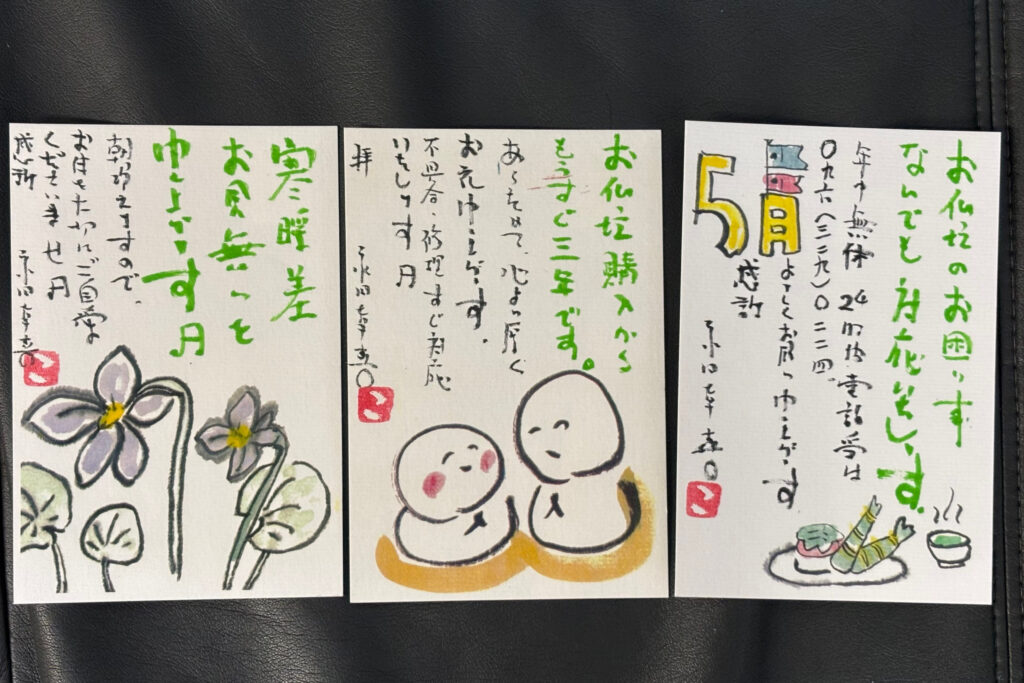 お仏坛のお困り事
なんでも対応致します。
年中無休 24時間電話受は
〇九六(三三九)〇二二四。
5月
よろしくお見つゆ上げます
感謝
お仏坛購入から
もうすぐ三年です。
あらためて、心より厚く
お礼申し上げます。
不具合、修理すぐ対応
いたします
拝
寒暖差
お見舞いを
申し上げます
朝夕冷えますので、
お体をたいせつにご自愛
くださいませ
感謝